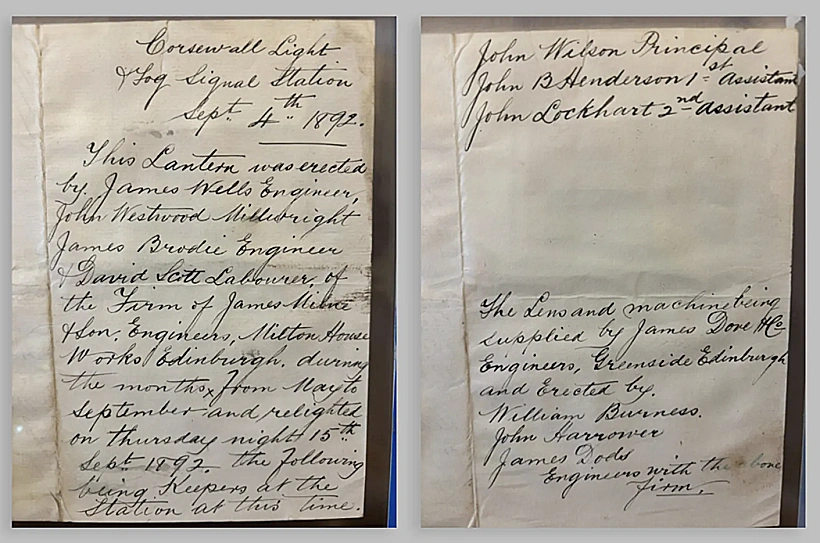 Corsewall Light
& Fog Signal Station
Sept. 4th 1892.
This Lantern was erected
by James Wells Engineer,
John Westwood Millwright
James Brodie Engineer
& David Scott Labourer, of
the Firm of James Milne
& Son, Engineers, Milton House
Works Edinburgh. during
the months from May to
September and relighted
on thursday night 15th
Sept. 1892. the following
being Keepers at the
Station at this time.
John Wilson Principal
John B Henderson 1st assistant
John Lockhart 2nd assistant
The Lens and machine being
supplied by James Dove & Co
Engineers, Greenside Edinburgh
and Erected by.
William Burness.
John Harrower
James Dods
Engineers with the above
firm.